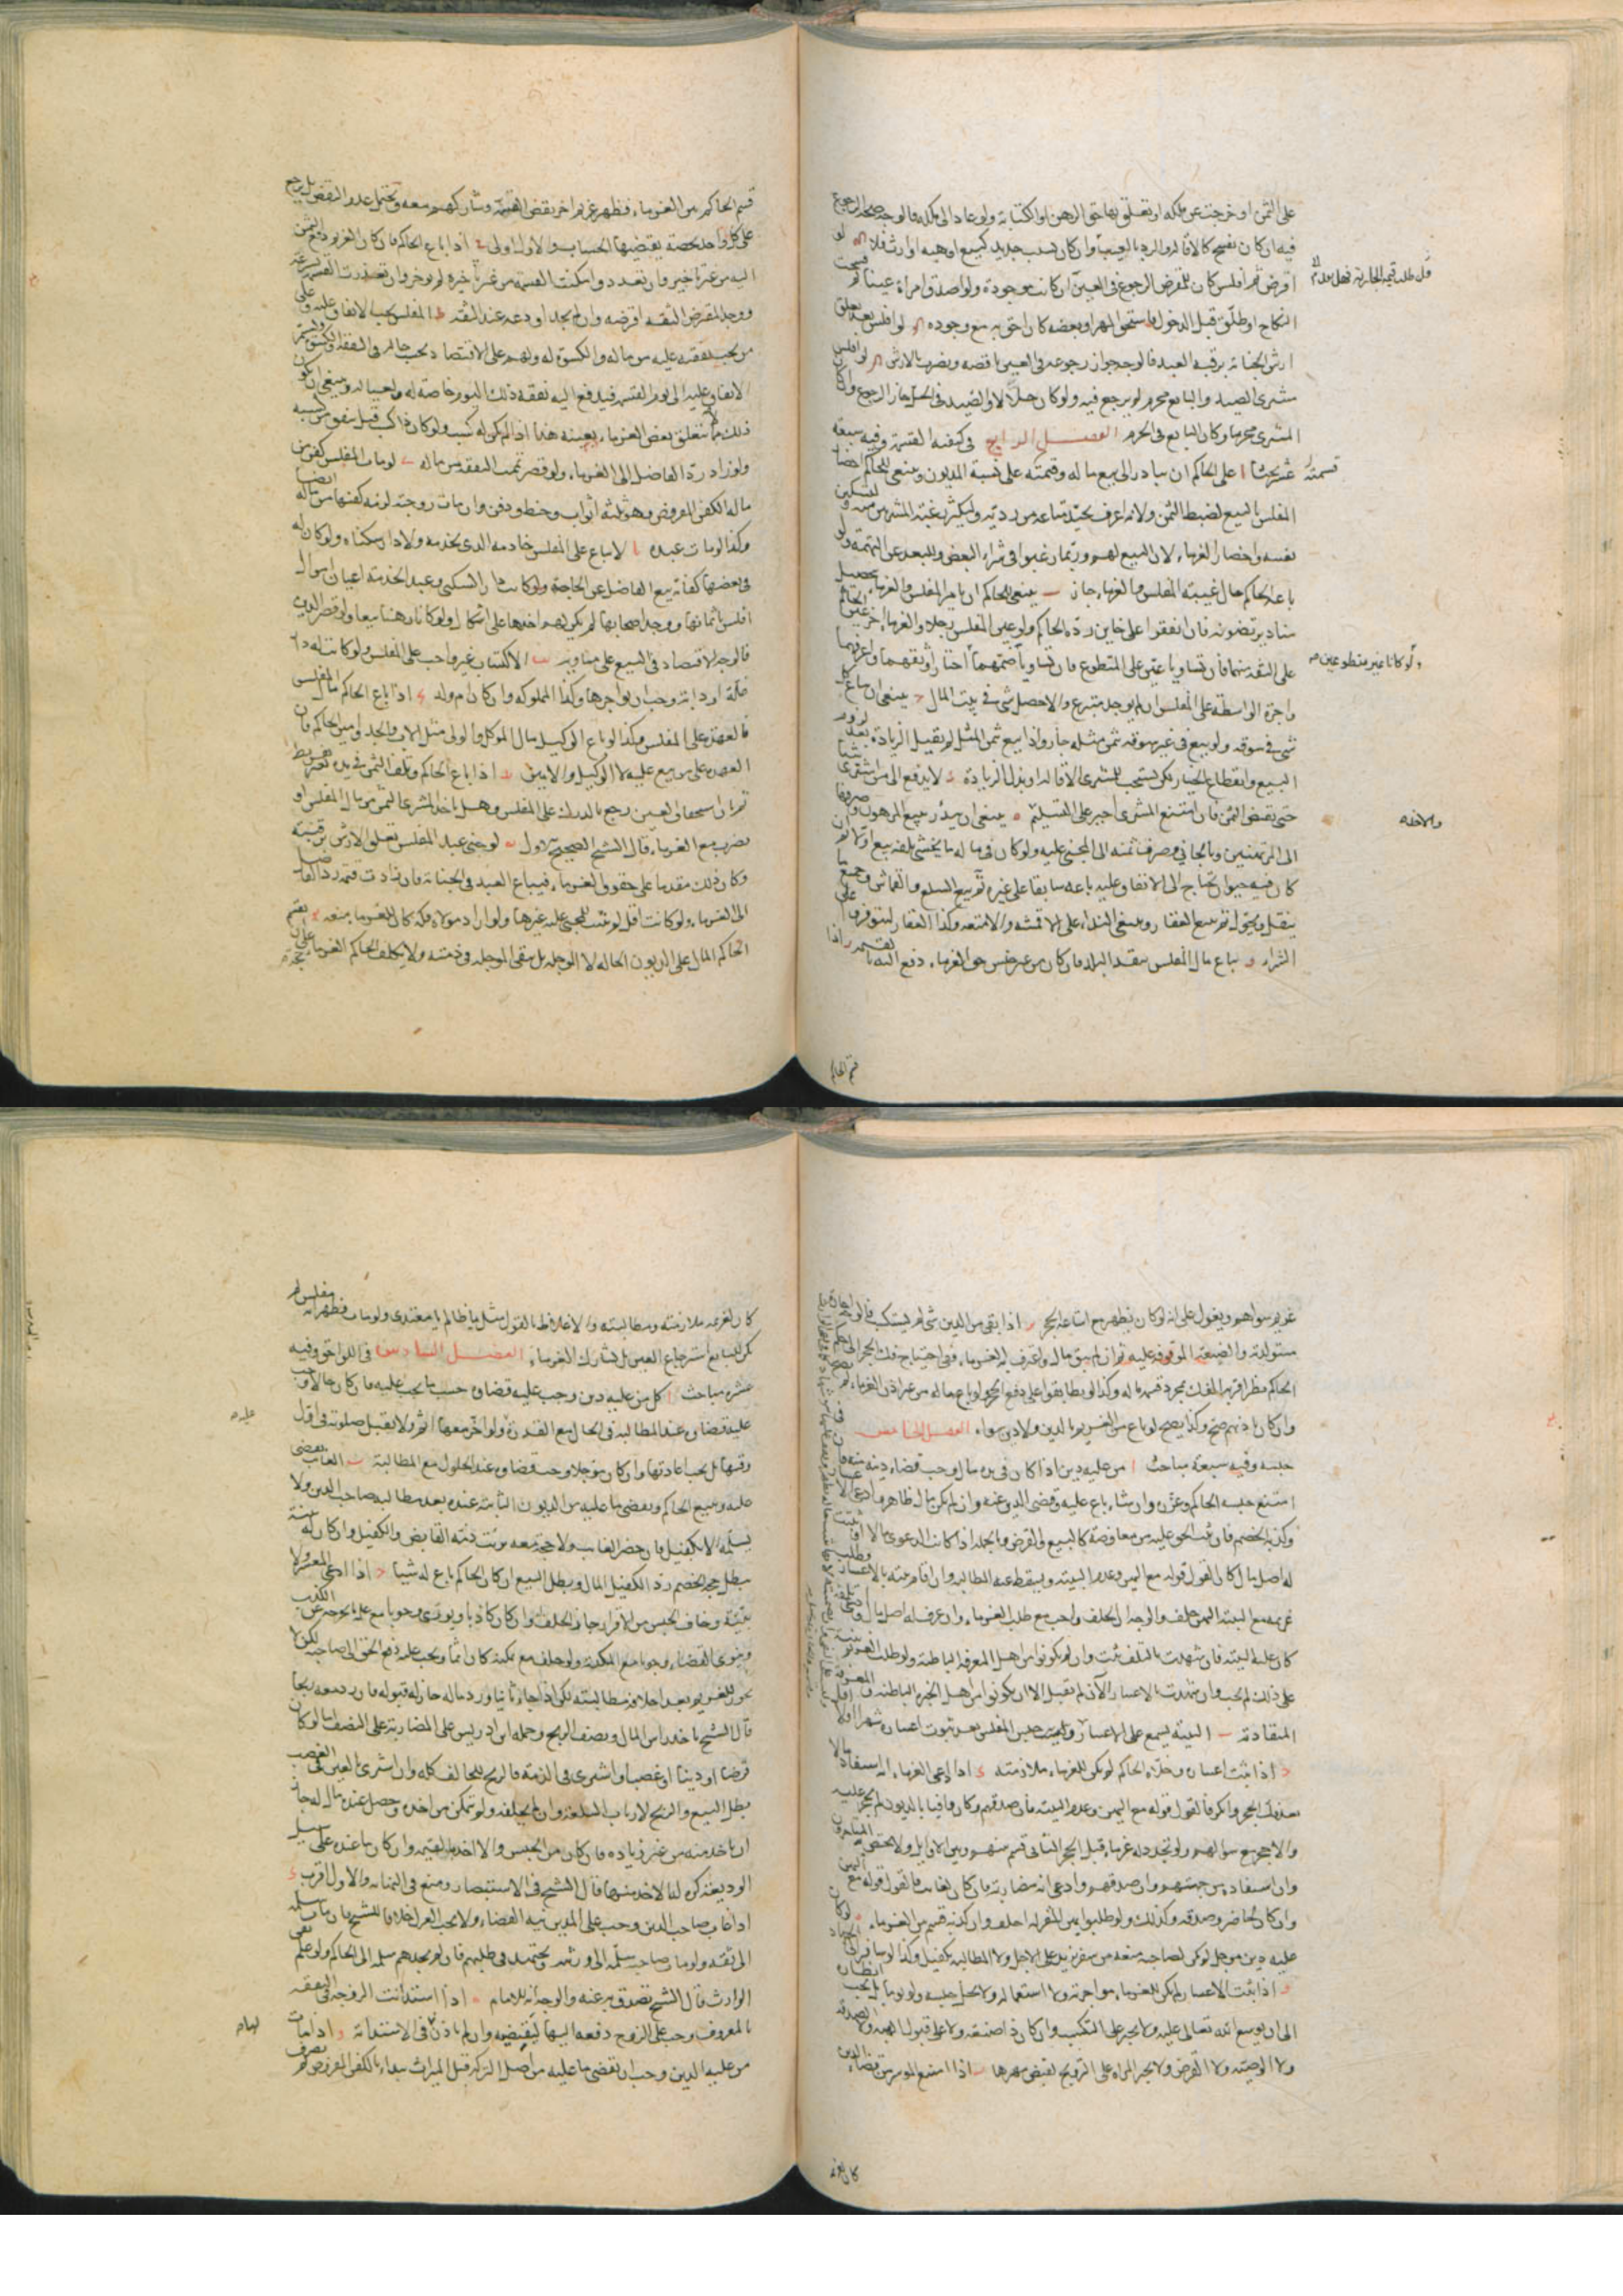 على الثمن او خرجت عن ملكه او تعلق بها حق الرهن او الكتابة ولو عاد الى ملكه فالوجه صحة الرجوع
فيه ان كان بفسخ كالاقالة والرد بالعيب وان كان بسبب جديد كبيع او هبة او ارث فلا لو
اقرض ثم افلس كان للمقرض الرجوع في العين ان كانت موجودة ولو اصدق امراة عينا ثم فسخت
النكاح او طلق قبل الدخول فاستحق المهر او بعضه كان احق به مع وجوده لو افلس بعد تعلق
ارش الجناية برقبة العبد فالوجه جواز رجوعه في العين ناقصة ويضرب بالارش لو افلس
مشترى الصيد والبايع محرم لم يرجع فيه ولو كان حلالا والصيد في الحل جاز الرجوع وان كان
المشترى محرما وكان البايع في الحرم الفصل الرابع في كيفية القسمة وفيه سبعة
عشر بحثا ا على الحاكم ان يبادر الى بيع ماله وقسمته على نسبة الديون وينبغي للحاكم احضار
المفلس البيع لضبط الثمن ولانه اعرف بجيد متاعه من رديه ولتكثر رغبة المشترين منه ولتسكين
نفسه واحضار الغرماء لان البيع لهم وربما رغبوا في شراء البعض وللبعد عن التهمة ولو
باعه الحاكم حال غيبة المفلس والغرماء جاز ب ينبغي للحاكم ان يامر المفلس والغرماء بتحصيل
مناد يرتضونه فان اتفقوا على خاين رده الحاكم ولو عين المفلس رجلا والغرماء اخر عين الحاكم
على الثقة منهما فان تساويا عين على المتطوع فان تساويا ضمهما اختار اوثقهما واعرفهما
واجرة الواسطة على المفلس ان لم يوجد متبرع ولا حصل شي في بيت المال ج ينبغي ان يباع كل
شي في سوقه ولو بيع في غير سوقه بثمن مثله جاز واذا بيع بثمن المثل ثم بذل الزيادة بعد لزوم
البيع وانقطاع الخيار لكن يستحب للمشترى الاقالة او بذل الزيادة د لا يدفع الى من اشترى شيئا
حتى يقبض الثمن فان امتنع المشترى اجبر على التسليم ه ينبغي ان يبدا ببيع المرهون وصرفها
الى المرتهنين وبالجاني وصرف ثمنه الى المجني عليه ولو كان في ماله ما يخشى تلفه بيع اولا ثم ان
كان فيه حيوان يحتاج الى الانفاق وعليه باعه سابقا على غيره ثم يبيع السلع والقماش وجميع ما
ينقل ويحول ثم يبيع العقار وينبغي النداء على الاقمشة والامتعة وكذا العقار ليتوفر على
الشراء و يباع مال المفلس بنقد البلد فان كان من غير جنس حق الغرماء دفع اليه بالقسمة ز اذا
قسمته
ولو كانا غير متطوعين
والاخذ
قسم الحاكم
قسم الحاكم بين الغرماء فظهر غريم اخر نقض القسمة وشاركهم معه ويحتمل عدم النقض بل يرجع
على كل واحد بحصة يقتضيها الحساب والاول اولى ح اذا باع الحاكم فان كان الغريم واحدا دفع الثمن
اليه من غير تاخير وان تعدد وامكنت القسمة من غير تاخيره لم يوخر وان تعذرت القسمة بسرعة
ووجد المقرض الثقة اقرضه وان لم يجد اودعه عند الثقة ط المفلس يجب الانفاق عليه وعلى
من يجب نفقته عليه من ماله والكسوة له ولهم على الاقتصاد بحسب حالهم في النفقة والكسوة ويستمر
الانفاق عليه الى يوم القسمة فيدفع اليه نفقة ذلك اليوم خاصة له ولعياله وينبغي ان يكون
ذلك مما لم يتعلق بعض الغرماء بعينه هذا اذا لم يكن له كسب ولو كان ذا كسب قبل ينفق من كسبه
ولو زاد رد الفاضل الى الغرماء ولو قصر تمت النفقة من ماله ي لو مات المفلس كفن من
ماله الكفن المفروض وهو ثلثة اثواب وحنط ودفن وان مات زوجته لزمه كفنها من ماله ايضا
وكذا لو مات عبده يا لا يباع على المفلس خادمه الذي يخدمه ولا دار سكناه ولو كان له
في بعضها كفاية بيع الفاضل عن الحاجة ولو كانت دار السكنى وعبد الخدمة اعيان اموال
افلس باثمانها ووجد اصحابها لم يكن لهم اخذها على اشكال ولو كانا رهنا بيعا ولو قصر الدين
فالوجه الاقتصاد في البيع على مساويه يب الاكتساب غير واجب على المفلس ولو كانت له دار
غلة او دابة وجب ان يواجرها وكذا المملوكة وان كان ام ولد يج اذا باع الحاكم مال المفلس
فالعهدة على المفلس وكذا لو باع الوكيل مال الموكل والولي مثل الاب والجد وامين الحاكم فان
العهدة على من بيع عليه لا الوكيل والامين يد اذا باع الحاكم وتلف الثمن في يده بغير تفريط
ثم بان استحقاق العين رجع بالدرك على المفلس وهل ياخذ المشترى الثمن من مال المفلس او
يضرب مع الغرماء قال الشيخ الصحيح الاول يه لو جنى عبد المفلس تعلق الارش برقبته
وكان ذلك مقدما على حقوق الغرماء فيباع العبد في الجناية فان زادت قيمته رد الفاضل
الى الغرماء ولو كانت اقل لم يثبت للمجني عليه غيرها ولو اراد مولاه فكه كان للغرماء منعه يو يقسم
الحاكم المال على الديون الحالة لا الموجلة بل يبقى الموجلة في ذمته ولا يكلف الحاكم الغرماء حجة على ان
غريم سواهم ويعول على انه لو كان لظهر مع اشاعة الحجر يز اذا بقي من الدين شي لم يستكسب فالوجه اجارة
مستولدته والضيعة الموقوفة عليه ثم ان لم يبق مال واعترف له الغرماء ففي احتياج فك الحجر الى حكم
الحاكم نظر اقربه الفك بمجرد قسمة ماله وكذا لو تطابقوا على رفع الحجر ولو باع ماله من غير اذن الغرماء لم يصح
وان كان باذنهم صح وكذا يصح لو باع من الغريم بالدين ولا دين سواه الفصل الخامس في
حبسه وفيه سبعة مباحث ا من عليه دين اذا كان في يده مال وجب قضاء دينه منه فان
امتنع حبسه الحاكم وعزره وان شاء باع عليه وقضى الدين عنه وان لم يكن مال ظاهر وادعى الاعسار
وكذبه الخصم فان ثبت الحق عليه من معاوضة كالبيع والقرض وبالجملة اذا كانت الدعوى مالا او ثبت
له اصل مال كان القول قوله مع اليمين وعدم البينة ويسقط عنه المطالبة وان اقام بينة بالاعسار وطلب
غريمه مع البينة اليمين حلف والوجه ان الحلف واجب مع طلب الغرماء وان عرف له اصل مال وادعى تلفه
كان عليه البينة فان شهدت بالتلف ثبت وان لم يكونوا من اهل المعرفة الباطنة ولو طلب الغريم يمينه
على ذلك لم يجب وان شهدت بالاعسار الان لم تقبل الا ان يكونوا من اهل الخبرة الباطنة والمعرفة
المتقادمة ب البينة يسمع على الاعسار ولا يجب حبس المفلس بعد ثبوت اعساره شهرا او اقل
ج اذا ثبت اعساره وخلاه الحاكم لم يكن للغرماء ملازمته د اذا ادعى الغرماء انه استفاد مالا
بعد فك الحجر وانكر فالقول قوله مع اليمين وعدم البينة فان صدقهم وكان وافيا بالديون لم يحجر عليه
والا حجر مع سوالهم ولو تجدد له غرماء قبل الحجر الثاني قسم بينهم وبين الاوايل ولا يختص به المتاخرون
وان استفاد من جهتهم وان صدقهم وادعى انه مضاربة فان كان لغايب فالقول قوله مع اليمين
وان كان لحاضر وصدقه فكذلك ولو طلبوا يمين المقر له احلف وان كذبه قسم بين الغرماء ه لو كان
عليه دين موجل لم يكن لصاحبه منعه من سفر يزيد على الاجل ولا المطالبة بكفيل وكذا لو سافر الى الجهاد
و اذا ثبت الاعسار لم يكن للغرماء مواجرته ولا استعماله ولا يحل حبسه ولا لزومه بل يجب انظاره
الى ان يوسع الله تعالى عليه ولا يجبر على التكسب وان كان ذا صنعة ولا على قبول الهبة والصدقة
ولا الوصية ولا القرض ولا يجبر المراة على التزويج لقبض مهرها ز اذا امتنع الموسر من قضاء الدين
كان لغريمه
كان لغريمه ملازمته ومطالبته والاغلاظ بالقول مثل يا ظالم يا معتدى ولو مات فظهر انه مفلس لم
يكن للبايع استرجاع العين بل يشارك الغرماء الفصل السادس في اللواحق وفيه
عشرة مباحث ا كل من عليه دين وجب عليه قضاوه حسب ما يجب عليه فان كان حالا وجب
عليه قضاوه عند المطالبة في الحال مع القدرة ولو اخر معها اثم ولا تقبل صلوته في اول
وقتها بل يجب اعادتها وان كان موجلا وجب قضاوه عند الحلول مع المطالبة ب الغايب يقضى
عليه ويبيع الحاكم ويقضى ما عليه من الديون الثابتة عنده بعد مطالبة صاحب الدين ولا
يسلمه الا بكفيل فان حضر الغايب ولا حجة معه برئت ذمة القابض والكفيل وان كان له بينة
يبطل حجة الخصم رد الكفيل المال ويبطل البيع ان كان الحاكم باع له شيئا ج اذا ادعى المعسر ولا
بينة وخاف الحبس من الاقرار جاز الحلف وان كان كاذبا ويورى وجوبا مع علمه ما يخرجه عن الكذب
وينوى القضاء وجوبا مع المكنة ولو حلف مع مكنة كان اثما ويجب عليه دفع الحق الى صاحبه لكن لا
يجوز للغريم بعد احلافه مطالبته لكن اذا جاء تائبا ورد ماله جاز له قبوله فان رد معه ربحا
قال الشيخ ياخذ راس المال ونصف الربح وحمله ابن ادريس على المضاربة على النصف اما لو كان
قرضا او دينا او غصبا واشترى في الذمة فالربح للحالف كله وان اشترى بالعين في الغصب
بطل البيع والربح لارباب السلعة وان لم يحلفه ولم يتمكن من اخذه وحصل عنده مال له جاز
ان ياخذ منه من غير زياده فان كان من الجنس والا اخذ بالقيمة وان كان ما عنده على سبيل
الوديعة كره لنا الاخذ منها قال الشيخ في الاستبصار ومنع في النهاية والاول اقرب د
اذا غاب صاحب الدين وجب على المدين نية القضاء ولا يجب العزل خلافا للشيخ فان مات سلمه
الى ثقة ولو مات صاحبه سلمه الى ورثته ويجتهد في طلبهم فان لم يجدهم سلمه الى الحاكم ولو علم نفى
الوارث قال الشيخ تصدق به عنه والوجه انه للامام ه اذا استدانت الزوجة في النفقة
بالمعروف وجب على الزوج دفعه اليها لتقبضه وان لم ياذن في الاستدانة و اذا مات
من عليه الدين وجب ان يقضى ما عليه من اصل التركة قبل الميراث يبداء بالكفن المفروض ثم يصرف
عليه